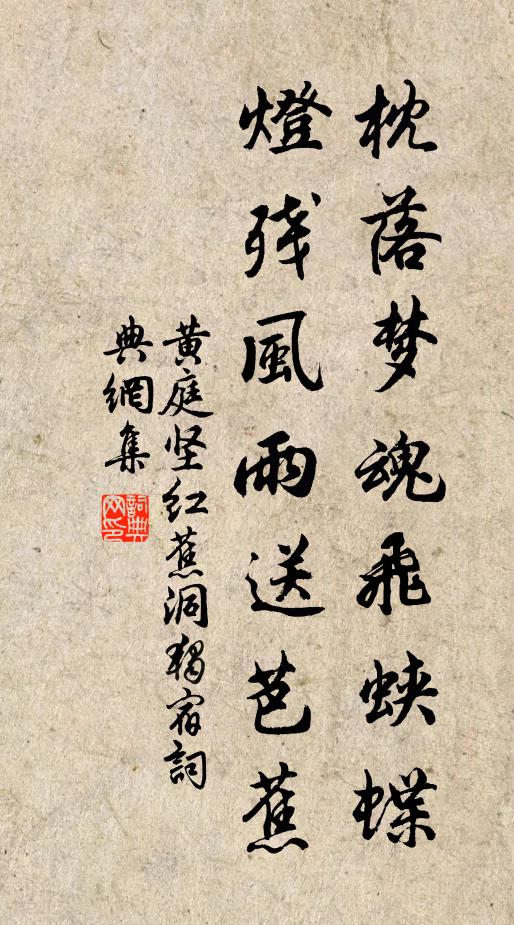 枕落梦魂飛蛺蝶
燈残風雨送芭蕉
黄庭坚红蕉洞独宿詞
典網集
詞典网印